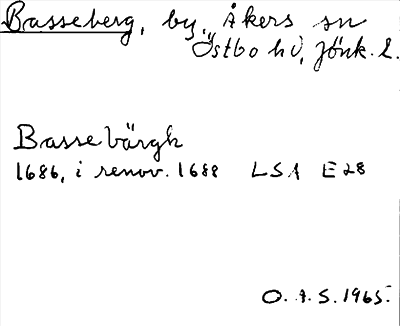 Basseberg, by, Åkers sn
Östbo hd, Jönk. l.
Bassebärgh
1686, i renov. 1688 LSA E28
O. A. S. 1965.